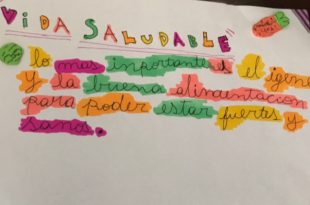 VIDA SALUDABLE"
lo mas importante es el igene
y la buena alimentacion
para poder estar fuertes y
sanos.